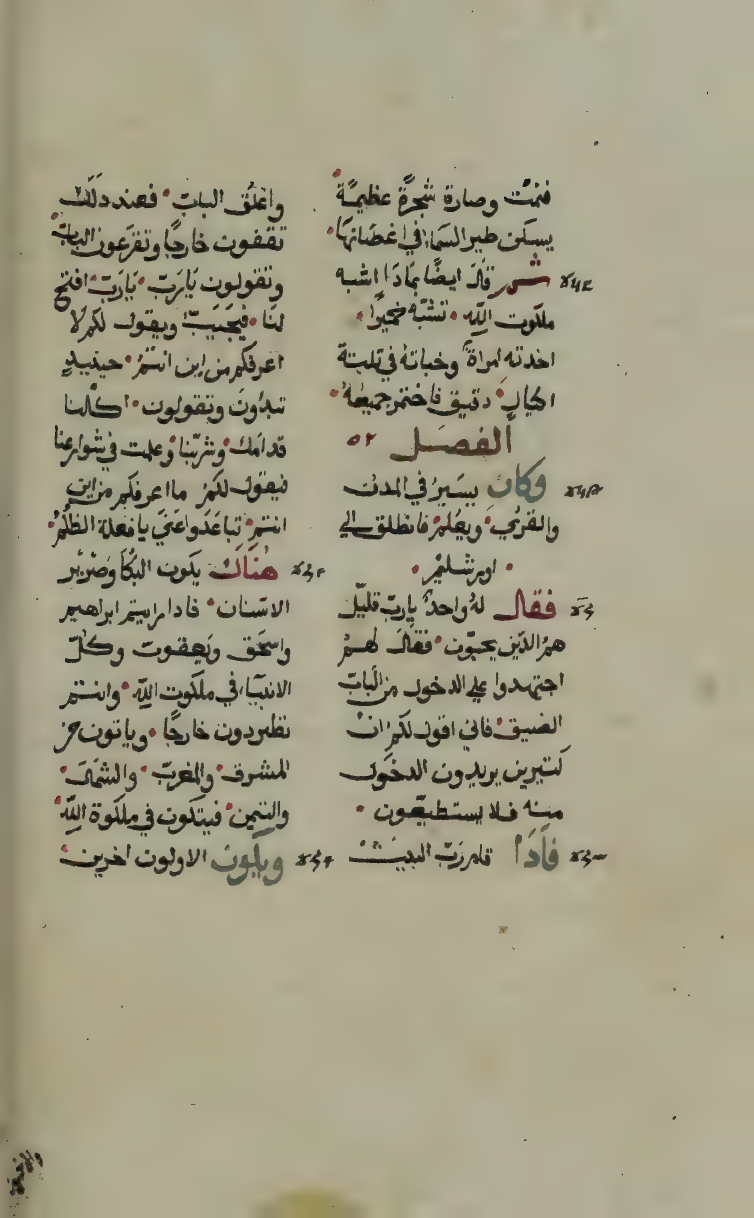 فنمت وصارة شجرة عظيمة
يسكن طير السماء في اغصانها
ثم قال ايضًا بماذا اشبه
ملكوت الله تشبه خميرًا
اخدته امراة وخباته في تلتة
اكيال دقيق فاختمر جميعه
الفصل ٥٢
وكان يسير في المدن
والقري ويعلم فانطلق الي
اورشليم
فقال له واحد يارب قليل
هم الذين يحيون فقال لهم
اجتهدوا علي الدخول من الباب
الضيق فاني اقول لكم ان
كتيرين يريدون الدخول
منه فلا يستطيعون
فاذا قام رب البيت
واغلق الباب فعند دلك
تقفون خارجًا وتقرعون الباب
وتقولون يارب يارب افتح
لنا فيجيب ويقول لكم لا
اعرفكم من اين انتم حينيدٍ
تبدون وتقولون اكلنا
قدامك وشربنا وعلمت في شوارعنا
فيقول لكم ما اعرفكم من اين
انتم تباعدوا عني يا فعلة الظلم
هناك يكون البكا وصرير
الاسنان فادا رايتم ابراهيم
واسحق ويعقوب وكل
الانبياء في ملكوت الله وانتم
تطردون خارجًا وياتون من
المشرق والمغرب والشمال
واليمين فيتكون في ملكوة الله
ويكون الاولون اخرين